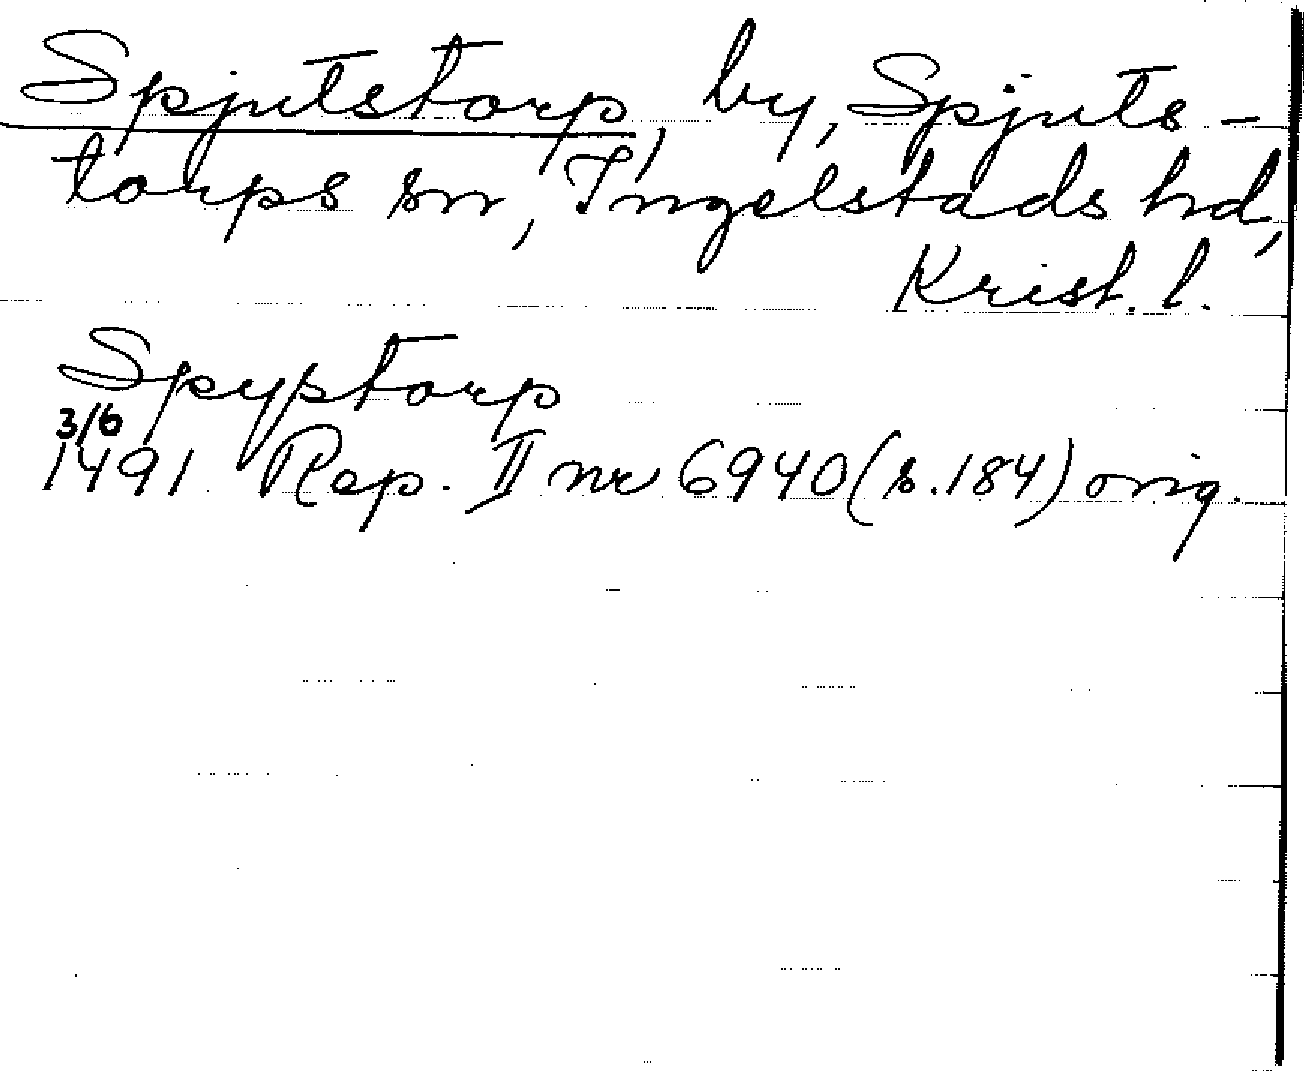 Spjutstorp, by, Spjuts-
torps sn, Ingelstads hd,
Krist. l.
Spyptorp
3/6
1491 Rep. II nr 6940 (s. 184) orig.